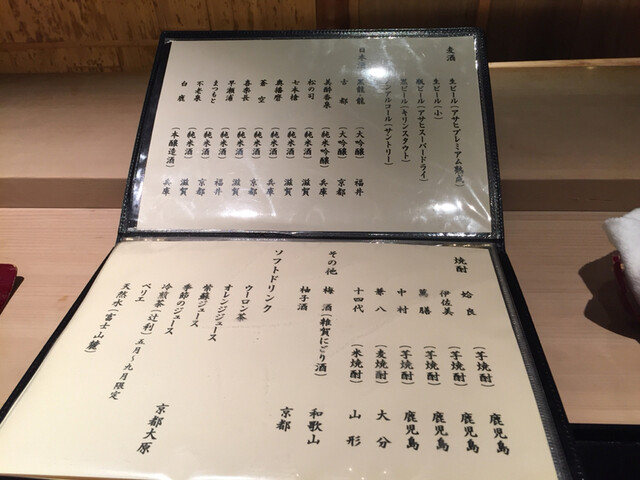 麦酒
生ビール(アサヒプレミアム熟成)
生ビール(小)
瓶ビール(アサヒスーパードライ)
黒ビール(キリンスタウト)
ンアルコール(サントリー)
日本酒
黒龍 龍 (大吟醸) 福井
古都 (大吟醸) 京都
美酔香泉 (純米吟醸) 兵庫
松の司 (純米酒) 滋賀
七本槍 (純米酒) 滋賀
奥播磨 (純米酒) 兵庫
蒼空 (純米酒) 京都
喜楽長 (純米酒) 滋賀
早瀬浦 (純米酒) 福井
まつもと (純米酒) 京都
不老泉 (純米酒) 滋賀
白鹿 (本醸造酒) 兵庫
焼酎
姶良 (芋焼酎) 鹿児島
伊佐美 (芋焼酎) 鹿児島
萬膳 (芋焼酎) 鹿児島
中村 (芋焼酎) 鹿児島
兼八 (麦焼酎) 大分
十四代 (米焼酎) 山形
その他
梅酒(雑賀にごり酒) 和歌山
柚子酒 京都
ソフトドリンク
ウーロン茶
オレンジジュース
紫蘇ジュース
季節のジュース
冷煎茶(辻利)五月~九月限定 京都大原
ペリエ
天然水(富士山麓)